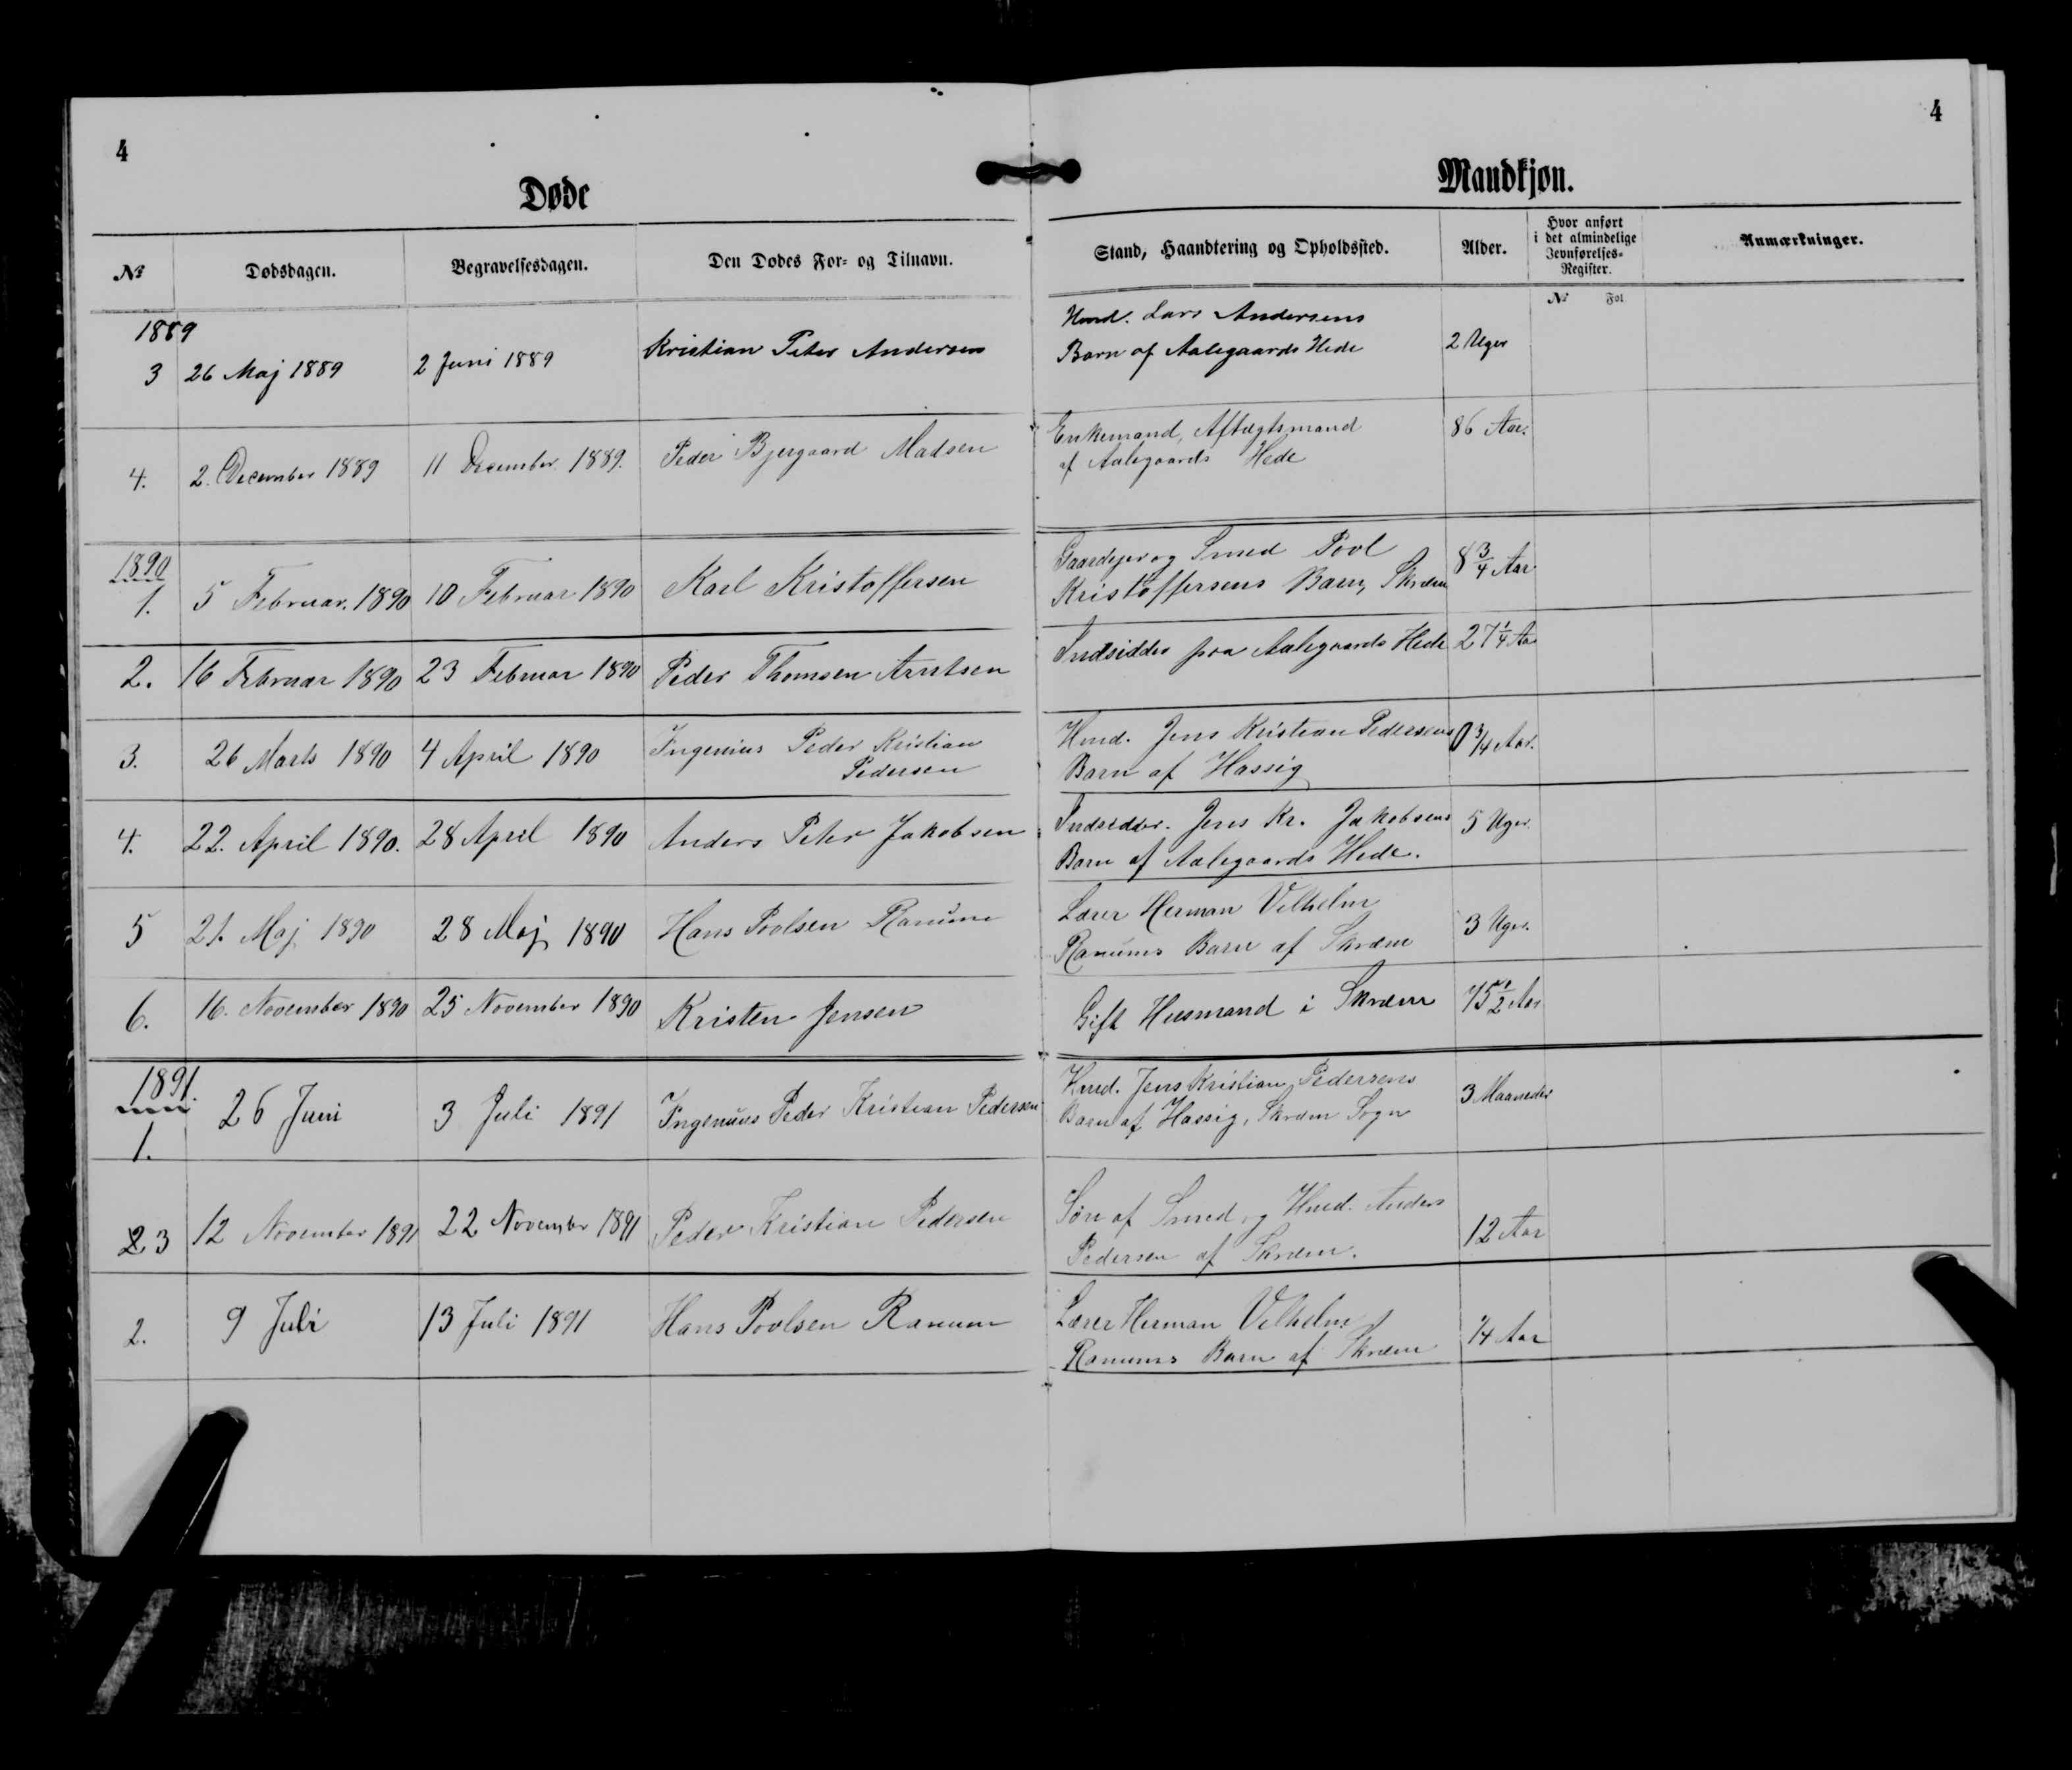 4
4
Døde
Mandkjøn.
№
Dødsdagen.
Begravelsesdagen.
Den Dødes For- og Tilnavn.
Stand, Haandtering og Opholdssted.
Alder.
Hvor anført
i det almindelige
Jevnførelses-
Register.
№ Fol
Anmærkninger.
1889
3 26 Maj 1889 2 Juni 1889 Kristian Peter Andersen
Hmd. Lars Andersens
Barn af Aalegaards Hede 2 Uger
4. 2. December 1889 11 December 1889. Peder Bjergaard Madsen
Enkemand, Aftægtsmand
af Aalegaards Hede 86 Aar.
1890
1. 5 Februar. 1890 10 Februar 1890 Karl Kristoffersen
Gaardejer og Smed Povl
Kristoffersens Barn, Skræm 8 3/4 Aar
2. 16 Februar 1890 23 Februar 1890 Peder Thomsen Arntsen
Indsidder paa Aalegaards Hede 27 1/4 Aar
3. 26 Marts 1890 4 April 1890 Ingenius Peder Kristian
Pedersen
Hmd. Jens Kristian Pedersens
Barn af Hassig 0 3/4 Aar.
4. 22. April 1890. 28 April 1890 Anders Peter Jakobsen
Indsidder. Jens Kr. Jakobsens
Barn af Aalegaards Hede. 5 Uger.
5 21. Maj 1890 28 Maj 1890 Hans Povlsen Ranum
Lærer Herman Vilhelm
Ranums Barn af Skræm 3 Uger.
6. 16. November 1890 25 November 1890 Kristen Jensen
Gift Husmand i Skræm 75 1/2 Aar
1891.
1. 26 Juni 3 Juli 1891 Ingenius Peder Kristian Pedersen
Hmd. Jens Kristian Pedersens
Barn af Hassig, Skræm Sogn 3 Maaneder
2 3 12 November 1891 22 November 1891 Peder Kristian Pedersen
Søn af Smed og Hmd. Anders
Pedersen af Skræm. 12 Aar
2. 9 Juli 13 Juli 1891 Hans Povlsen Ranum
Lærer Herman Vilhelm
Ranums Barn af Skræm 1/4 Aar